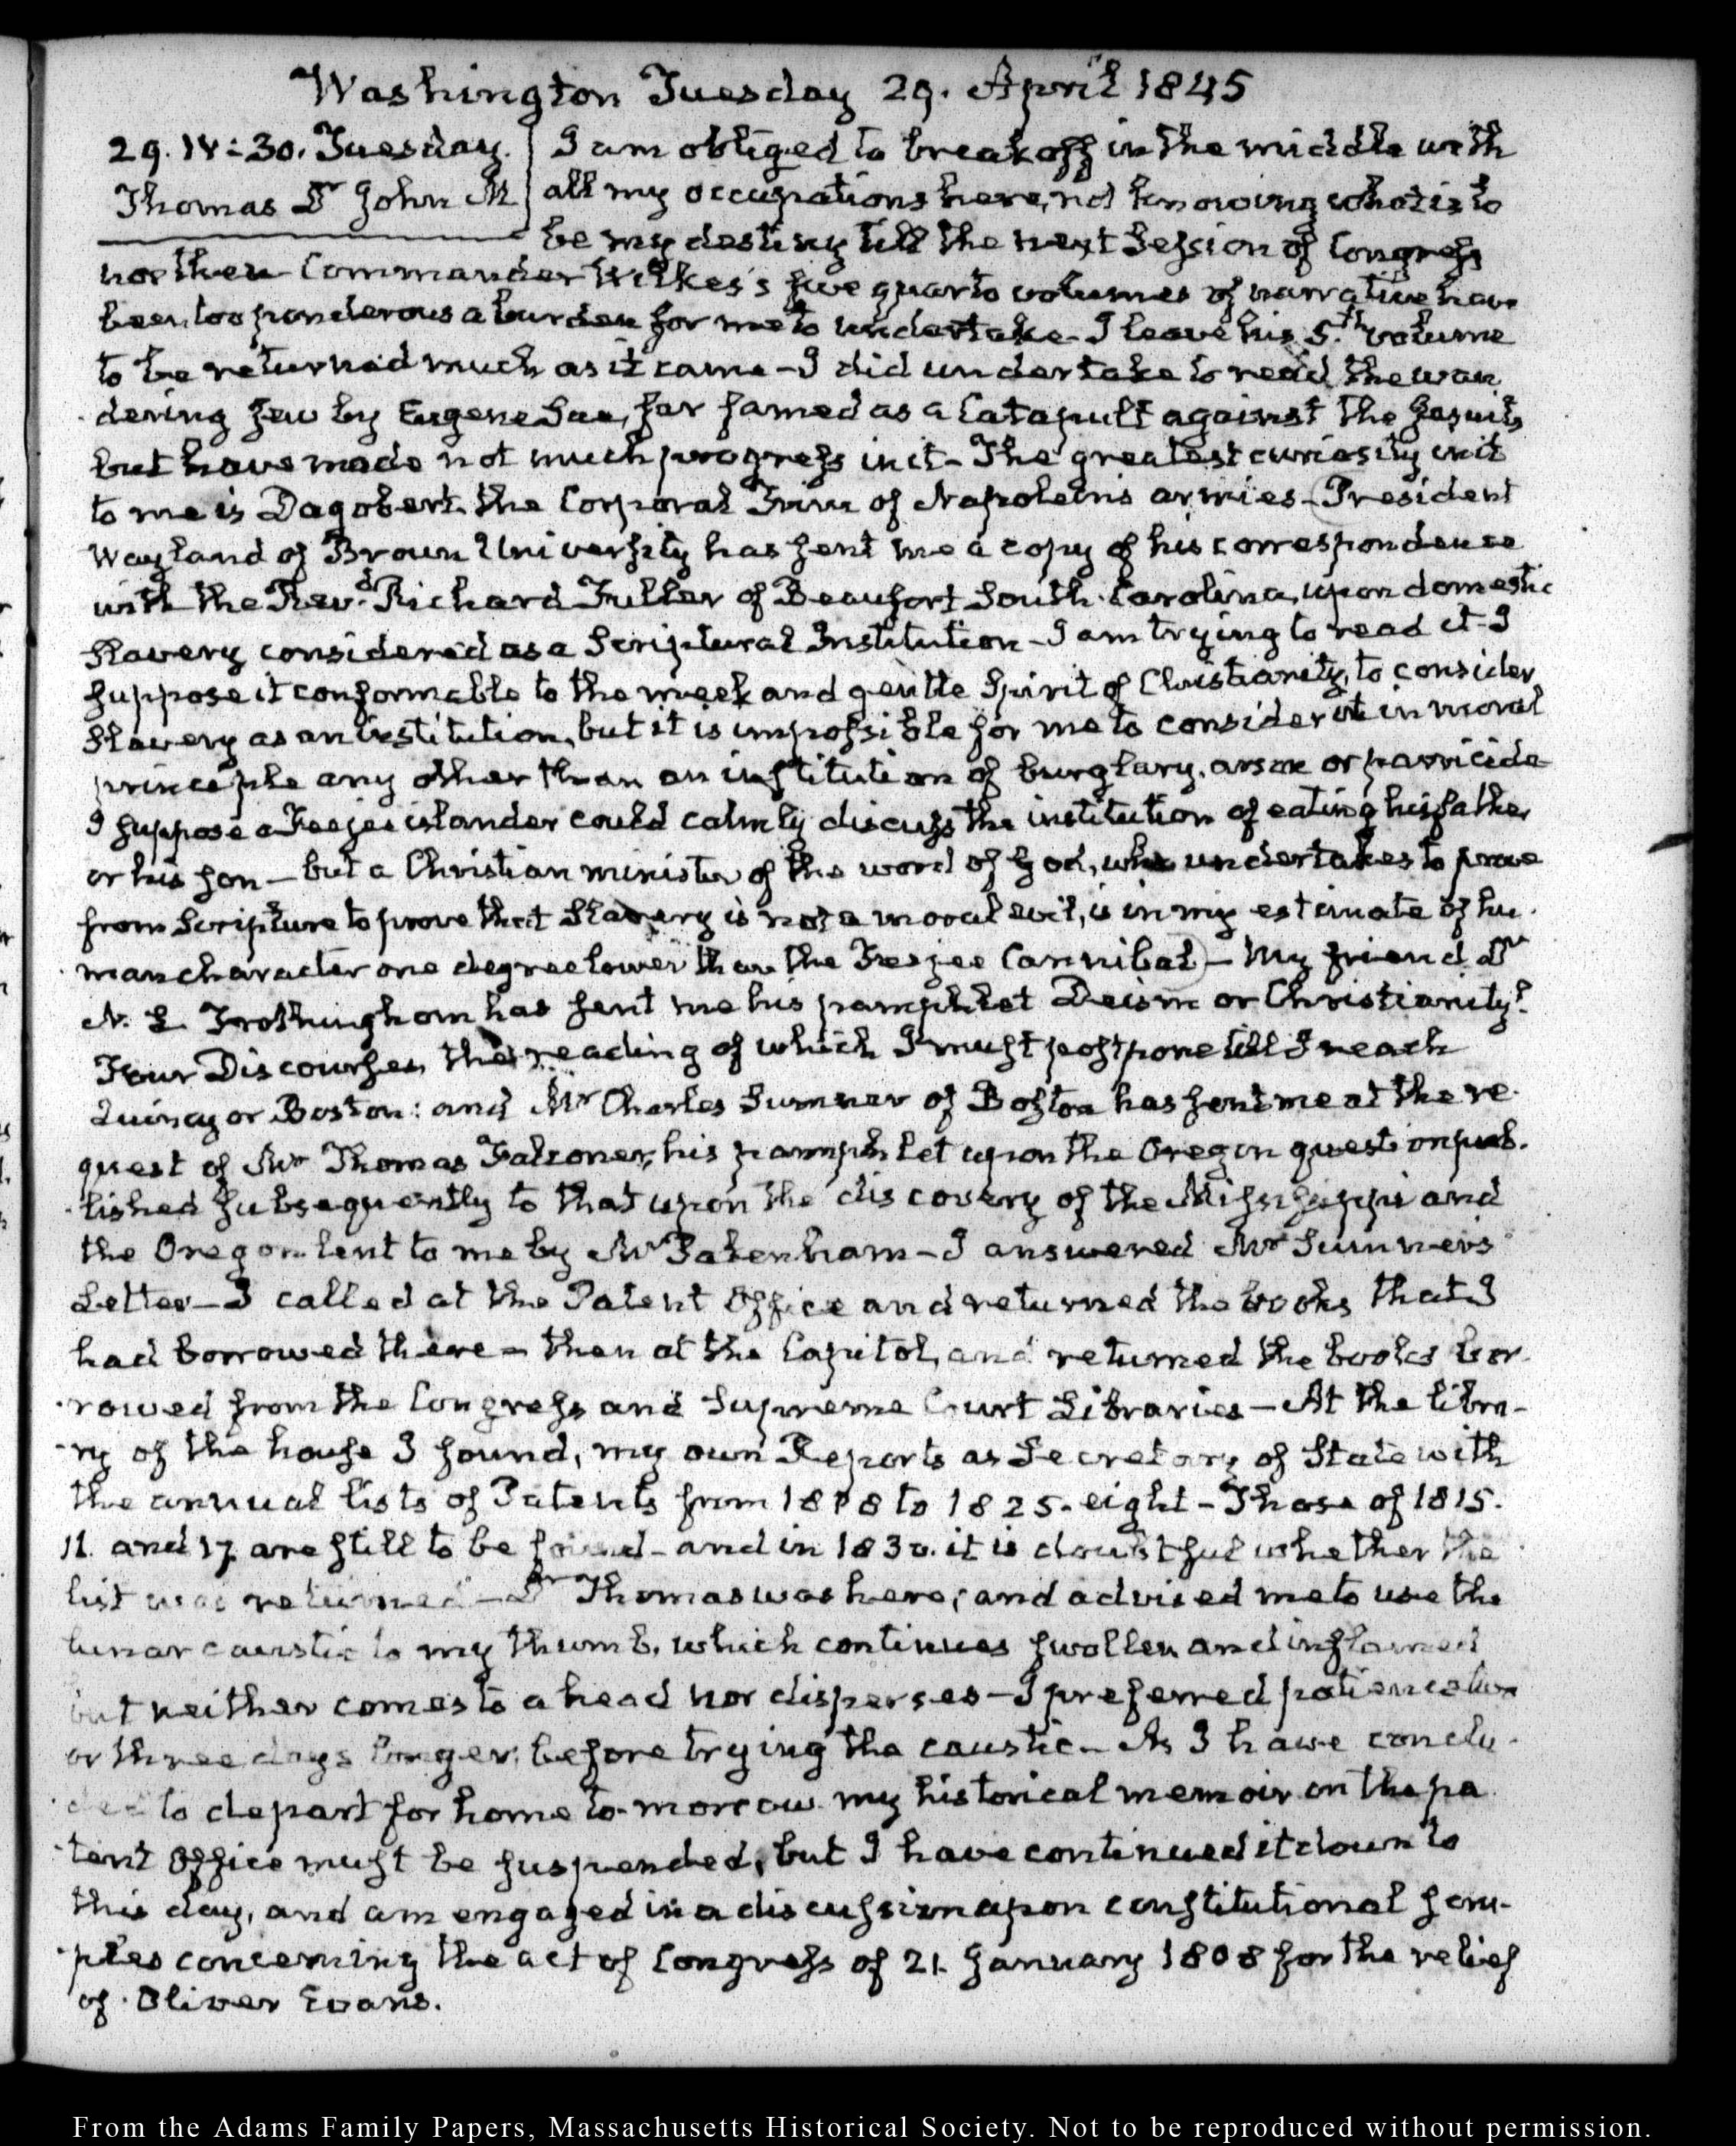 Washington Tuesday 29. April 1845
29. IV:30. Tuesday.
Thomas Dr John M
I am obliged to break off in the middle with
all my occupations here, nd knowing what is to
be my destiny till the next Session of Congress
now then Commander Wilkes's five quarto volumes of narrative have
been too ponderous a burden for me to undertake - I leave his 5.th volume
to be returned much as it came - I did undertake to read the wan
dering Jew by Eugene Sue, far famed as a Catapult against the Jesuits
but have made not much progress in it - The greatest curiosity in it
to me is Dagobert. the Corporal Trim of Napoleon's armies - President
Wayland of Brown University has sent me a copy of his correspondence
with the Rev.d Richard Fuller of Beaufort South Carolina, upon domestic
Slavery considered as a Scriptural Institution - I am trying to read it - I
suppose it conformable to the meek and gentle Spirit of Christianity, to consider
Slavery as an institution, but it is impossible for me to consider it in moral
principle any other than an institution of burglary, arson or parricide
I suppose a Feejee islander could calmly discuss the institution of eating his father
or his son - but a Christian minister of the word of God, who undertakes to prove
from Scripture to prove that Slavery is not a moral evil, is in my estimate of hu-
man character one degree lower than the Feejee Cannibal - My friend Dr
N. L. Frothingham has sent me his pamphlet Deism or Christianity?
Four Discourses, the reading of which I must postpone till I reach
Quincy or Boston: and Mr Charles Sumner of Boston has sent me at the re-
quest of Mr Thomas Falconer, his pamphlet upon the Oregon question pub-
lished subsequently to that upon the discovery of the Mississippi and
the Oregon lent to me by Mr Pakenham - I answered Mr Sumner's
Letter - I called at the Patent Office and returned the books that I
had borrowed there - then at the Capitol, and returned the books bor-
rowed from the Congress and Supreme Court Libraries - At the libra-
ry of the house I found, my own Reports as Secretary of State with
the annual lists of Patents from 1818 to 1825. eight - Those of 1815.
11. and 17 are still to be found - and in 1830. it is doubtful whether the
list was returned - Dr Thomas was here; and advised me to use the
lunar caustic to my thumb, which continues swollen and inflamed
but neither comes to a head nor disperses - I preferred patience two
or three days longer, before trying the caustic - As I have conclu-
ded to depart for home to-morrow my historical memoir on the pa
tent Office must be suspended, but I have continued it down to
this day, and am engaged in a discussion upon constitutional scru-
ples concerning the act of Congress of 21. January 1808 for the relief
of Oliver Evans.
From the Adams Family Papers, Massachusetts Historical Society. Not to be reproduced without permission.